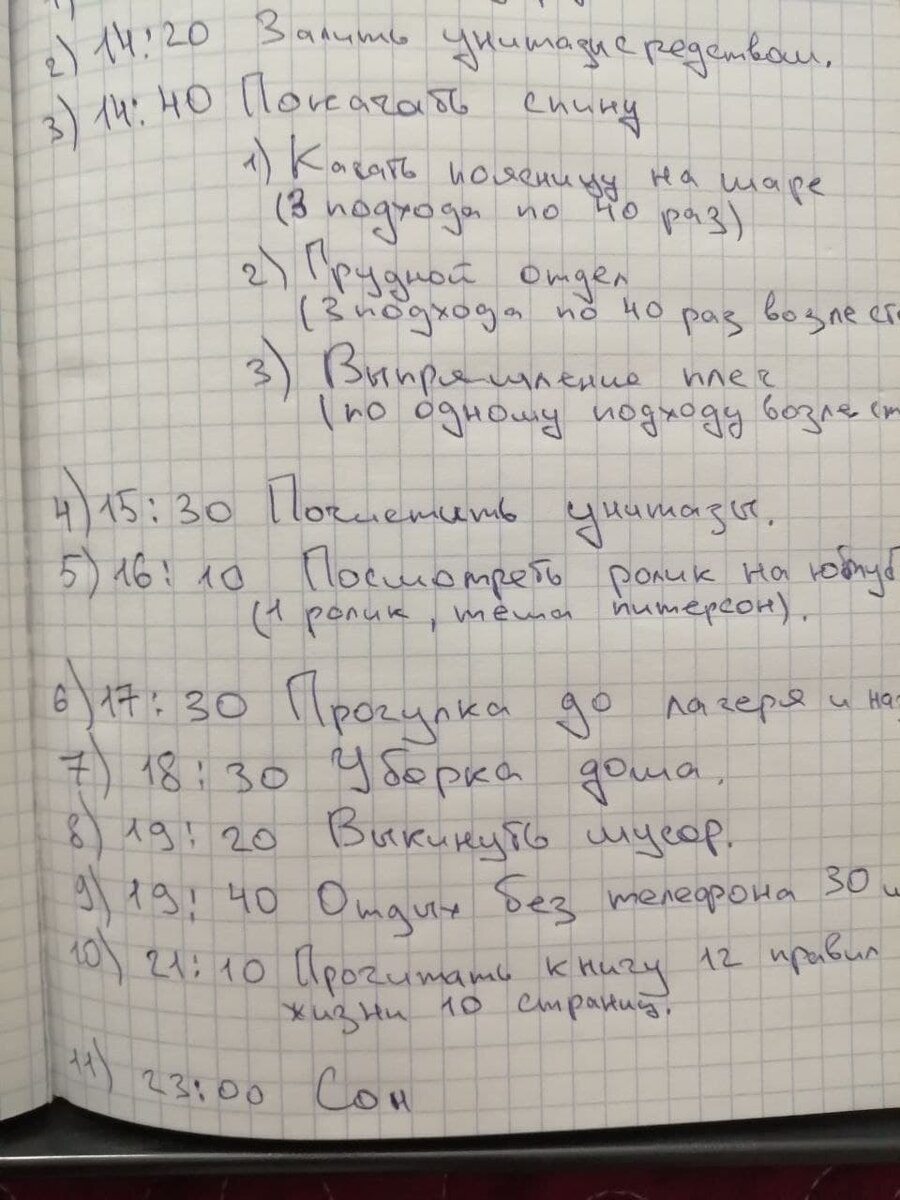 2) 14:20 Залить унитазы средством.
3) 14:40 Покачать спину
1) Качать поясницу на шаре
(3 подхода по 40 раз)
2) Грудной отдел
(3 подхода по 40 раз возле ст
3) Выпрямление плеч
(по одному подходу возле ст
4) 15:30 Почистить унитазы.
5) 16:10 Посмотреть ролик на ютуб
(1 ролик, тёма питерсон).
6) 17:30 Прогулка до лагеря и на
7) 18:30 Уборка дома.
8) 19:20 Выкинуть мусор.
9) 19:40 Отдых без телефона 30
10) 21:10 Прочитать книгу 12 правил
жизни 10 страниц.
11) 23:00 Сон